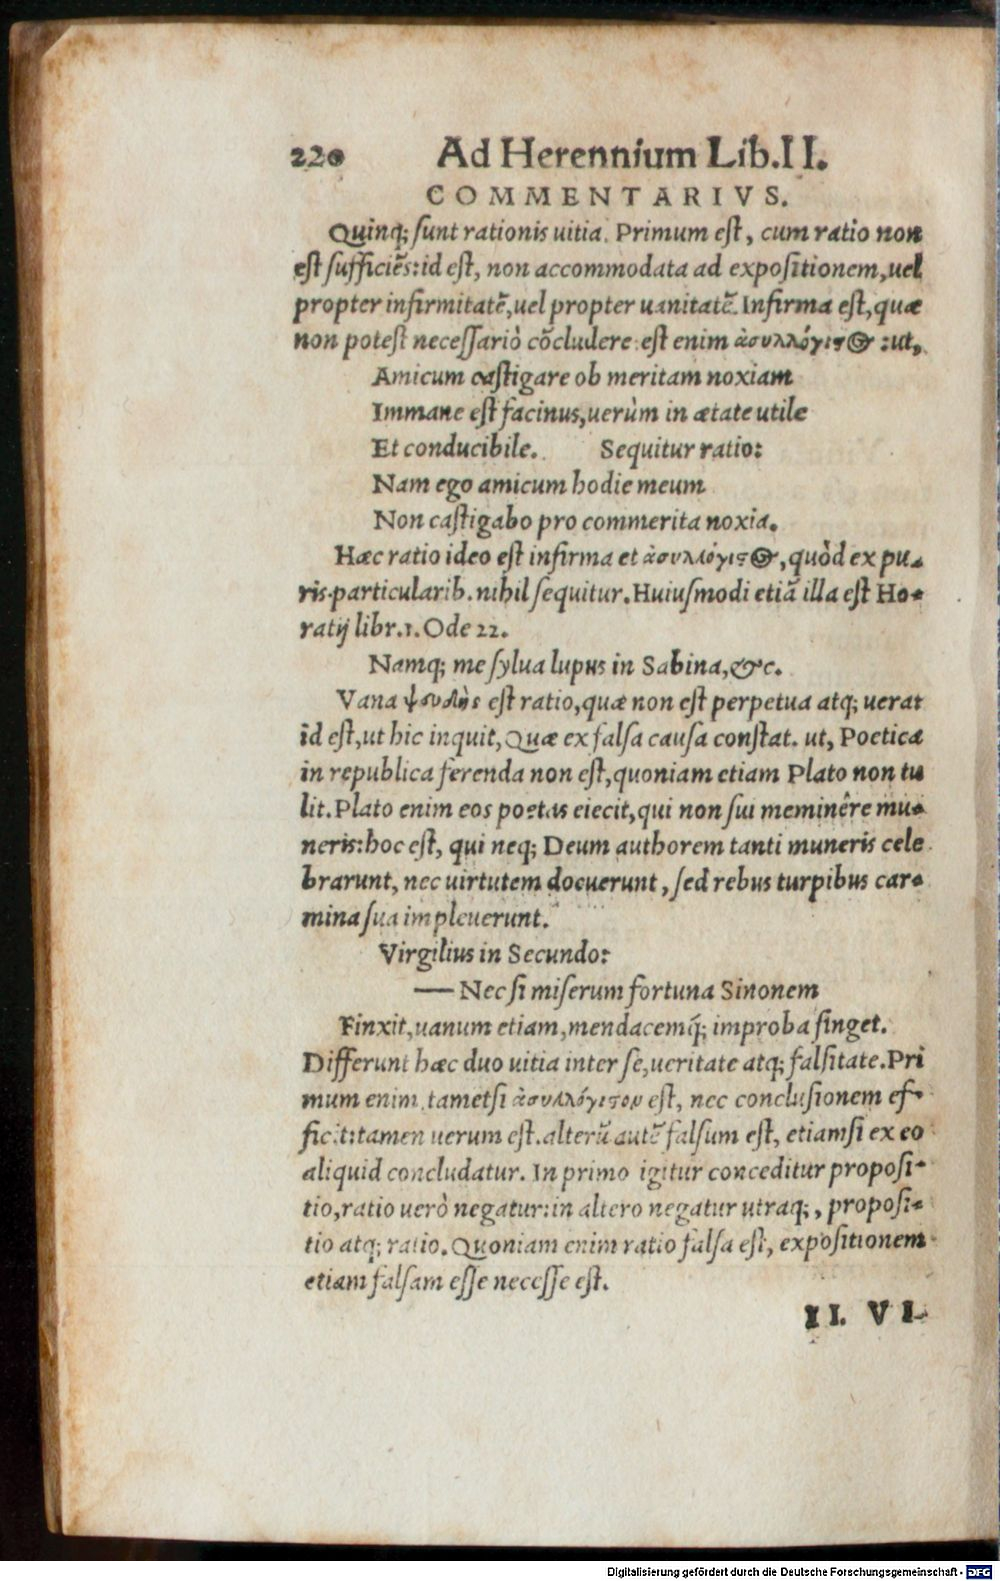 220 Ad Herennium Lib.II.
COMMENTARIVS.
Quinq; sunt rationis uitia. Primum est, cum ratio non
est sufficiẽs: id est, non accommodata ad expositionem, uel
propter infirmitatẽ, uel propter uanitatẽ. Infirma est, quæ
non potest necessariò cõcludere: est enim ἀσυλλόγιστος: ut,
Amicum castigare ob meritam noxiam
Immane est facinus, uerùm in ætate utile
Et conducibile. Sequitur ratio:
Nam ego amicum hodie meum
Non castigabo pro commerita noxia.
Hæc ratio ideo est infirma et ἀσυλλόγιστος, quòd ex pu-
ris particularib. nihil sequitur. Huiusmodi etiã illa est Ho-
ratij libr.1. Ode 22.
Namq; me sylua lupus in Sabina, &c.
Vana ψευδὴς est ratio, quæ non est perpetua atq; uera:
id est, ut hic inquit, Quæ ex falsa causa constat. ut, Poetica
in republica ferenda non est, quoniam etiam Plato non tu
lit. Plato enim eos poetas eiecit, qui non sui meminêre mu-
neris: hoc est, qui neq; Deum authorem tanti muneris cele
brarunt, nec uirtutem docuerunt, sed rebus turpibus car-
mina sua impleuerunt.
Virgilius in Secundo:
— Nec si miserum fortuna Sinonem
Finxit, uanum etiam, mendacemq́; improba finget.
Differunt hæc duo uitia inter se, ueritate atq; falsitate. Pri
mum enim, tametsi ἀσυλλόγιστον est, nec conclusionem ef-
ficit: tamen uerum est. alterũ autẽ falsum est, etiamsi ex eo
aliquid concludatur. In primo igitur conceditur proposi-
tio, ratio uerò negatur: in altero negatur utraq;, proposi-
tio atq; ratio. Quoniam enim ratio falsa est, expositionem
etiam falsam esse necesse est.
II. VI-
Digitalisierung gefördert durch die Deutsche Forschungsgemeinschaft - DFG